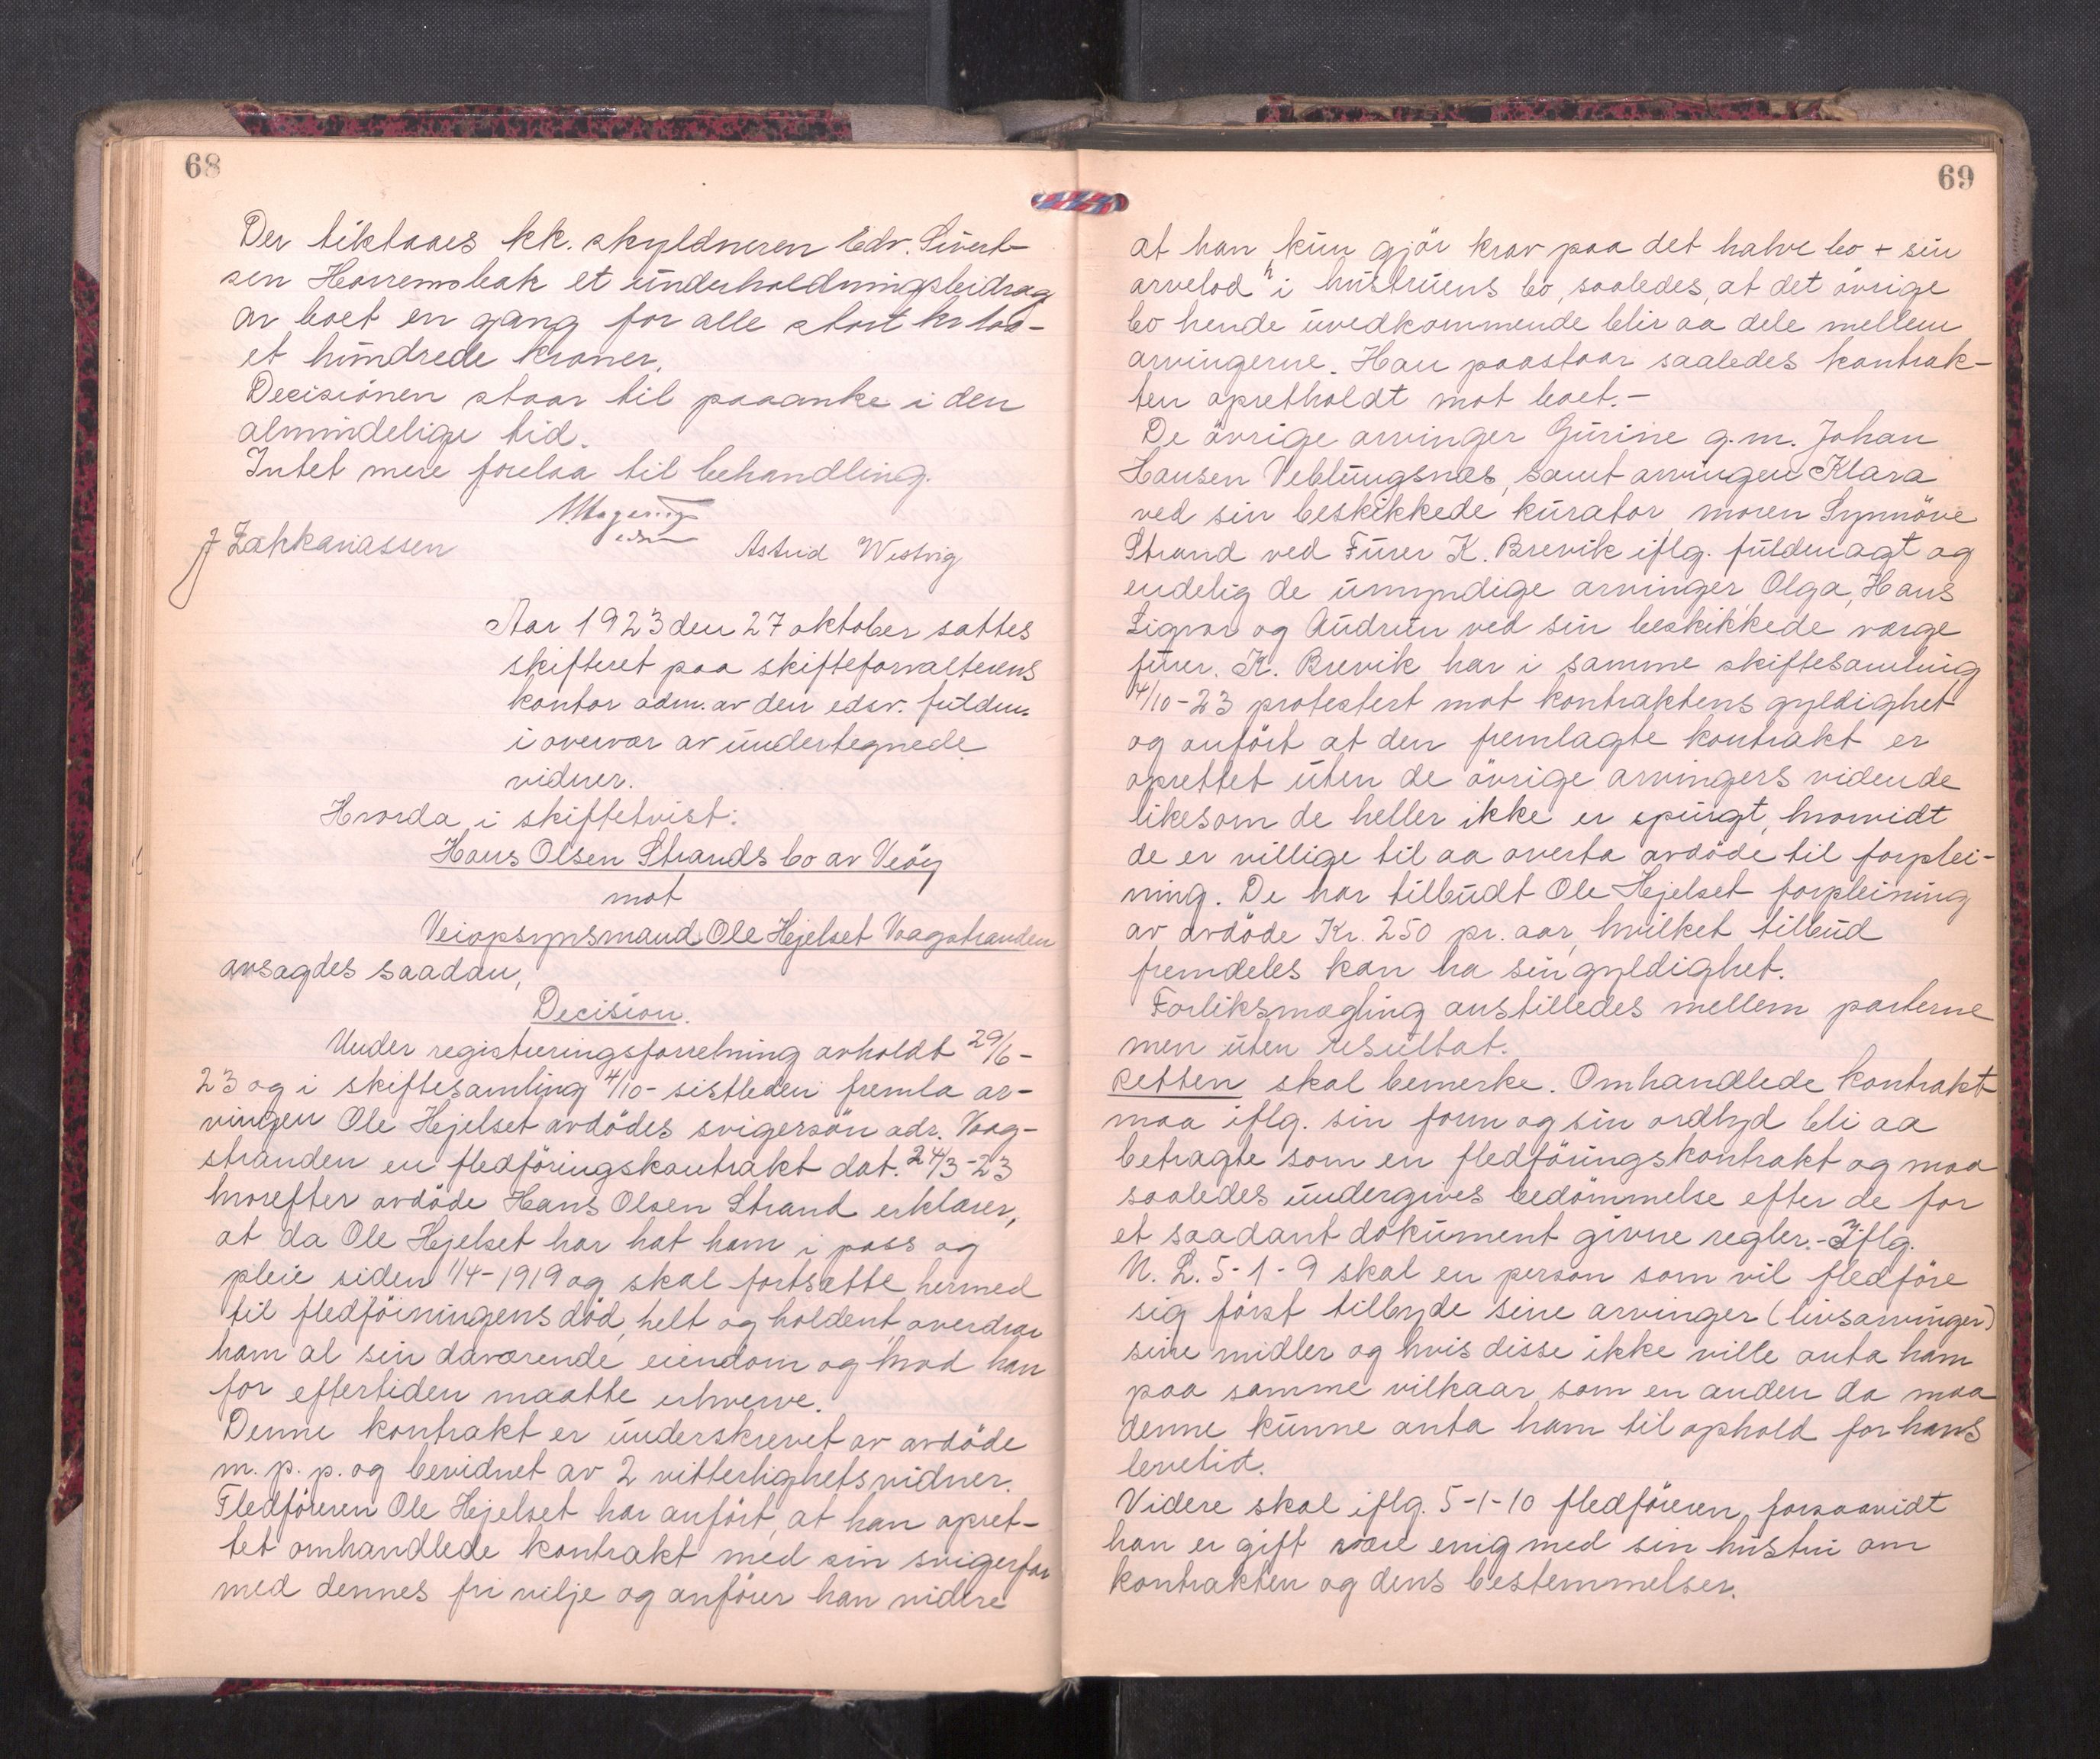 68
Der tilstaaes kk. skyldneren Edv. Sivert-
sen Horremsbak et underholdningsbeidrag
av boet en gang for alle stort kr 100-
et hundrede kroner.
Decisionen staar til paaanke i den
almindelige tid.
Intet mere forelaa til behandling.
J Zakkariassen
Astrid Westvig
Aar 1923 den 27 oktober sattes
skifteret paa skifteforvalterens
kontor adm. av den edsv. fuldm.
i overvær av undertegnede
vidner.
Hvorda i skiftetvist:
Hans Olsen Strands bo av Veöy
mot
Veiopsynsmand Ole Hjelset Vaagstranden
avsagdes saadan,
Decision.
Under registreringsforretning avholdt 29/6-
23 og i skiftesamling 4/10- sistleden fremla ar-
vingen Ole Hjelset avdödes svigersön adr. Vaag-
stranden en fledföringskontrakt dat. 24/3-23
hvorefter avdöde Hans Olsen Strand erklærer,
at da Ole Hjelset har hat ham i pass og
pleie siden 1/4-1919 og skal fortsætte hermed
til fledföringens död, helt og holdent overdrar
ham al sin daværende eiendom og hvad han
for eftertiden maatte erhverve.
Denne kontrakt er underskrevet av avdöde
m. p. p. og bevidnet av 2 vitterlighetsvidner.
Fledföreren Ole Hjelset har anfört, at han opret-
tet omhandlede kontrakt med sin svigerfar
med dennes fri vilje og anförer han videre
69
at han kun gjör krav paa det halve bo + sin
arvelod i hustruens bo, saaledes, at det övrige
bo hende uvedkommende blir aa dele mellem
arvingerne. Han paastaar saaledes kontrak-
ten opretholdt mot boet.-
De övrige arvinger Gurine g.m. Johan
Hansen Veblungsnæs, samt arvingen Klara
ved sin beskikkede kurator, moren Synnöve
Strand ved Furer K. Brevik iflg. fuldmagt og
endelig de umyndige arvinger, Olga, Hans
Sigvar og Audrun ved sin beskikkede værge
furer. K. Brevik har i samme skiftesamling
4/10-23 protestert mot kontraktens gyldighet
og anfört at den fremlagte kontrakt er
oprettet uten de övrige arvingers vidende
likesom de heller ikke er spurgt, hvorvidt
de er villige til aa overta avdöde til forplei-
ning. De har tilbudt Ole Hjelset forpleining
av avdöde Kr. 250 pr. aar, hvilket tilbud
fremdeles kan ha sin gyldighet.
Forliksmægling anstilledes mellem parterne
men uten resultat.
Retten skal bemerke. Omhandlede kontrakt
maa iflg. sin form og sin ordlyd bli aa
betragte som en fledföringskontrakt og maa
saaledes undergives bedömmelse efter de for
et saadant dokument givne regler.- Iflg.
N. L. 5-1-9 skal en person som vil fledföre
sig först tilbyde sine arvinger (livsarvinger)
sine midler og hvis disse ikke ville anta ham
paa samme vilkaar som en anden da maa
denne kunne anta ham til ophold for hans
levetid.
Videre skal iflg. 5-1-10 fledföreren, forsaavidt
han er gift være enig med sin hustru om
kontrakten og dens bestemmelser.